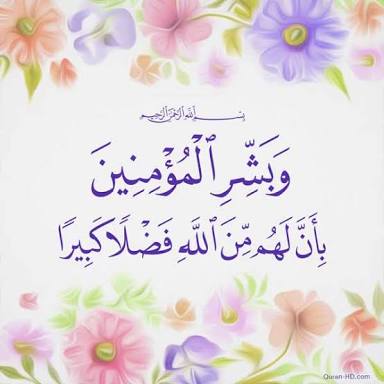 بِسْمِ اللَّهِ الرَّحْمَٰنِ الرَّحِيمِ
وَبَشِّرِ ٱلْمُؤْمِنِينَ
بِأَنَّ لَهُم مِّنَ ٱللَّهِ فَضْلًا كَبِيرًا
Quran-HD.com